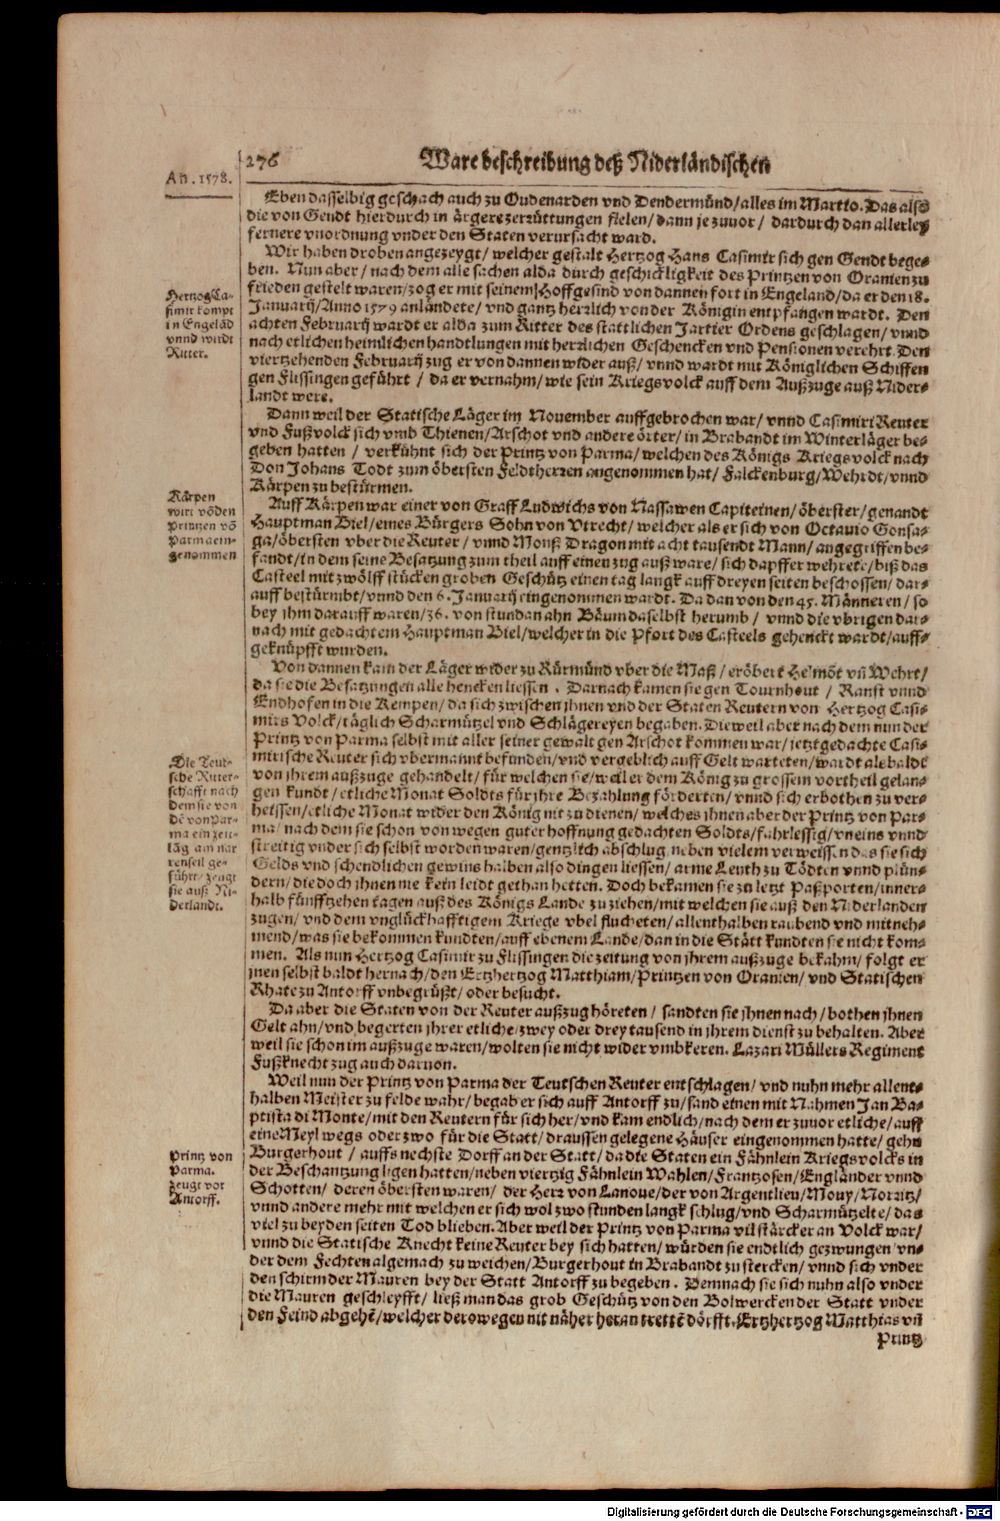 276
Ware beschreibung deß Niderländischen
An. 1578.
Eben dasselbig geschach auch zu Oudenarden vnd Dendermünd/alles im Martio. Das also
die von Gendt hierdurch in ärgere zerrüttungen fielen/dann je zuuor / dardurch dan allerley
fernere vnordnung vnder den Staten verursacht ward.
Wir haben droben angezeygt/ welcher gestalt Hertzog Hans Casimir sich gen Gendt bege-
ben. Nun aber/ nach dem alle sachen alda durch geschickligkeit des Printzen von Oranien zu
frieden gestelt waren/zog er mit seinem Hoffgesind von dannen fort in Engeland/da er den 18.
Januarij/Anno 1579 anländete/ vnd gantz herrlich von der Königin entpfangen wardt. Den
achten Februarij wardt er alda zum Ritter des stattlichen Jartier Ordens geschlagen/ vnnd
nach etlichen heimlichen handtlungen mit herrlichen Geschencken vnd Pensionen verehrt. Den
viertzehenden Februarij zug er von dannen wider auß/ vnnd wardt mit Königlichen Schiffen
gen Flissingen geführt / da er vernahm/ wie sein Kriegsvolck auff dem Außzuge auß Nider-
landt were.
Hertzog Ca-
simir kompt
in Engelãd
vnnd wirdt
Ritter.
Dann weil der Statische Läger im November auffgebrochen war/ vnnd Casimiri Reuter
vnd Fußvolck sich vmb Thienen/Arschot vnd andere örter/ in Brabandt im Winterläger be-
geben hatten / verkühnt sich der Printz von Parma/ welchen des Königs Kriegsvolck nach
Don Johans Todt zum öbersten Feldtherren angenommen hat/ Falckenburg/Wehrdt/vnnd
Kärpen zu bestürmen.
Auff Kärpen war einer von Graff Ludwichs von Nassawen Capiteinen/ öberster/genandt
Hauptman Biel/eines Bürgers Sohn von Vtrecht/ welcher als er sich von Octauio Gonsa-
ga/öbersten vber die Reuter/ vnnd Monß Dragon mit acht tausendt Mann/ angegriffen be-
fandt/in dem seine Besatzung zum theil auff einen zug auß ware/ sich dapffer wehrete/biß das
Casteel mit zwölff stücken groben Geschütz einen tag langk auff dreyen seiten beschossen/ dar-
auff bestürmbt/vnnd den 6. Januarij eingenommen wardt. Da dan von den 45. Männeren/ so
bey jhm darauff waren/36. von stundan ahn Bäum daselbst herumb / vnnd die vbrigen dar-
nach mit gedachtem Hauptman Biel/welcher in die Pfort des Casteels gehenckt wardt/auff-
geknüpfft wurden.
Kärpen
wirt võ den
Printzen võ
Parma ein-
genommen
Von dannen kam der Läger wider zu Rürmünd vber die Maß/ eröbert Helmõt vñ Wehrt/
da sie die Besatzungen alle hencken liessen . Darnach kamen sie gen Tournhout / Ranst vnnd
Endhofen in die Kempen/ da sich zwischen jhnen vnd der Staten Reutern von Hertzog Casi-
mirs Volck/täglich Scharmützel vnd Schlägereyen begaben. Dieweil aber nach dem nun der
Printz von Parma selbst mit aller seiner gewalt gen Arschot kommen war/ jetztgedachte Casi-
mirische Reuter sich vbermannt befunden/vnd vergeblich auff Gelt warteten/wardt alsbaldt
von jhrem außzuge gehandelt/ für welchen sie/weil er dem König zu grossem vortheil gelan-
gen kundt/ etliche Monat Soldts für jhre Bezahlung förderten/ vnnd sich erbothen zu ver-
heissen/etliche Monat wider den König nit zu dienen/ welches jhnen aber der Printz von Par-
ma/ nach dem sie schon von wegen guter hoffnung gedachten Soldts/fahrlessig/vneins vnnd
streitig vnder sich selbst worden waren/gentzlich abschlug/neben vielem verweissen das sie sich
Gelds vnd schendlichen gewins halben also dingen liessen/ arme Leuth zu Tödten vnnd plün-
dern/die doch jhnen nie kein leidt gethan hetten. Doch bekamen sie zu letzt Paßporten/inner-
halb fünfftzehen tagen auß des Königs Lande zu ziehen/mit welchen sie auß den Niderlanden
zugen/ vnd dem vnglückhafftigem Kriege vbel flucheten/ allenthalben raubend vnd mitneh-
mend/was sie bekommen kundten/auff ebenem Lande/dan in die Stätt kundten sie nicht kom-
men. Als nun Hertzog Casimir zu Flissingen die zeitung von jhrem außzuge bekahm/ folgt er
jnen selbst baldt hernach/den Ertzhertzog Matthiam/Printzen von Oranien/ vnd Statischen
Rhate zu Antorff vnbegrüßt/ oder besucht.
Die Teut-
sche Ritter-
schafft nach
dem sie von
dẽ von Par-
ma ein zeit-
lãg am nar
renseil ge-
führt/zeugt
sie auß Ni-
derlandt.
Da aber die Staten von der Reuter außzug höreten / sandten sie jhnen nach/ bothen jhnen
Gelt ahn/vnd begerten jhrer etliche/zwey oder drey tausend in jhrem dienst zu behalten. Aber
weil sie schon im außzuge waren/wolten sie nicht wider vmbkeren. Lazari Müllers Regiment
Fußknecht zug auch daruon.
Weil nun der Printz von Parma der Teutschen Reuter entschlagen/ vnd nuhn mehr allent-
halben Meister zu felde wahr/ begab er sich auff Antorff zu/sand einen mit Nahmen Jan Ba-
ptista di Monte/mit den Reutern für sich her/vnd kam endlich/nach dem er zuuor etliche/auff
eine Meyl wegs oder zwo für die Statt/draussen gelegene Häuser eingenommen hatte/ gehn
Burgerhout / auffs nechste Dorff an der Statt/da die Staten ein Fähnlein Kriegsvolcks in
der Beschantzung ligen hatten/neben viertzig Fähnlein Wahlen/Frantzosen/Engländer vnnd
Schotten/ deren öbersten waren/ der Herr von Lanoue/der von Argentlieu/Mouy/Norritz/
vnnd andere mehr mit welchen er sich wol zwo stunden langk schlug/vnd Scharmützelte/ das
viel zu beyden seiten Tod blieben. Aber weil der Printz von Parma vil stärcker an Volck war/
vnnd die Statische Knecht keine Reuter bey sich hatten/ würden sie endtlich gezwungen vn-
der dem Fechten algemach zu weichen/Burgerhout in Brabandt zu stercken/ vnnd sich vnder
den schirm der Mauren bey der Statt Antorff zu begeben . Demnach sie sich nuhn also vnder
die Mauren geschleyfft/ ließ man das grob Geschütz von den Bolwercken der Statt vnder
den Feind abgehẽ/welcher derowegen nit näher heran trettẽ dörfft. Ertzhertzog Matthias vñ
Printz von
Parma.
zeugt vor
Antorff.
Printz
Digitalisierung gefördert durch die Deutsche Forschungsgemeinschaft - DFG